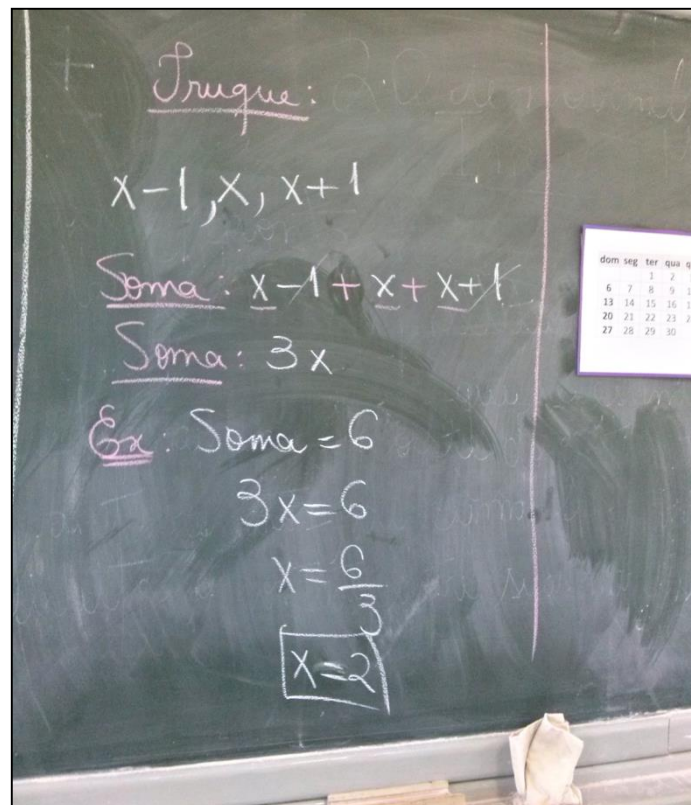 Truque:
x-1, x, x+1
Soma: x-1+x+x+1
Soma: 3x
Ex: Soma = 6
3x=6
x=6/3
x=2
dom seg ter qua
1 2
6 7 8 9
13 14 15 16
20 21 22 23
27 28 29 30